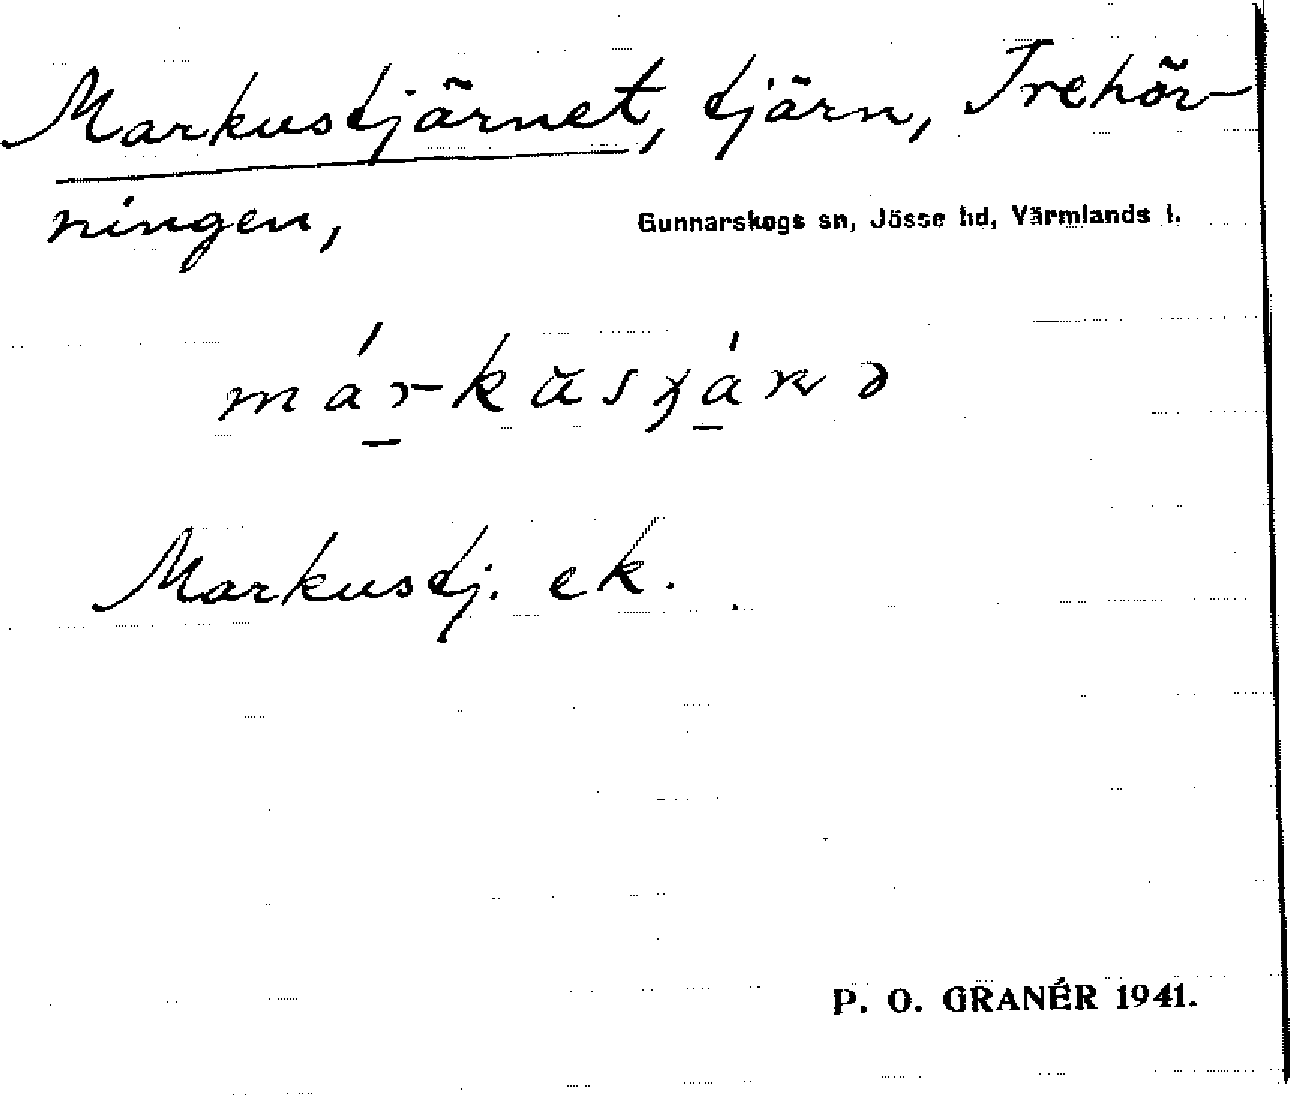 Markustjärnet, tjärn, Trehör-
ningen,
Gunnarskogs sn, Jösse hd, Värmlands l.
Markustj. ek.
P. O. GRANÉR 1941.